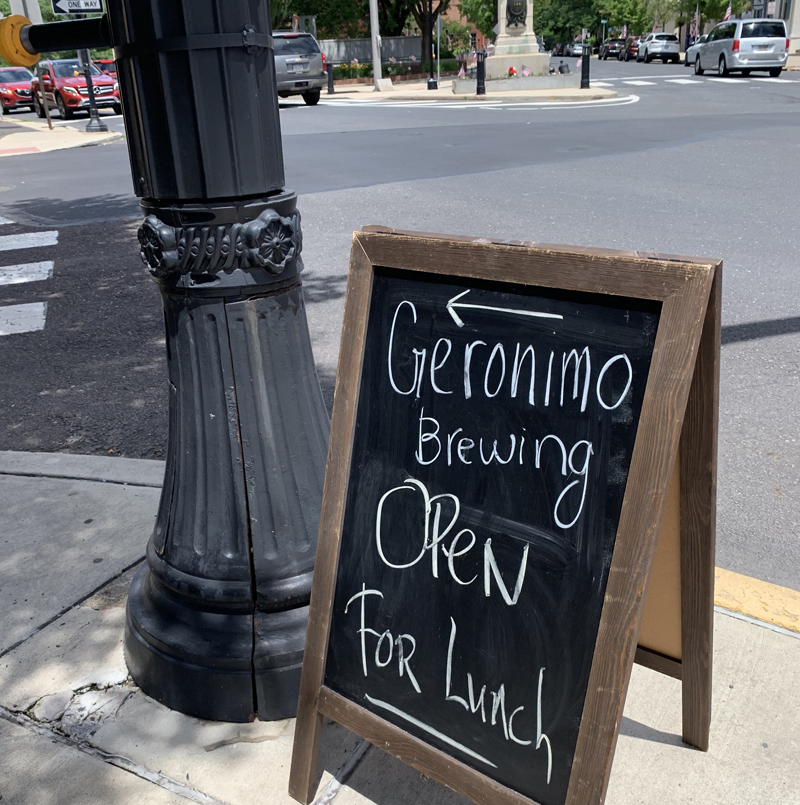 ONE WAY
Geronimo
Brewing
OPeN
FOR Lunch